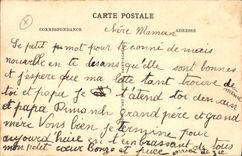 CARTE POSTALE
CORRESPONDANCE
ADRESSE
Chère Maman
Se petit pamot pour te donné de mais
nouvaille en te desans qu'elle sont bonnes
et j'espere que ma lete tant trouve de
toi et papa je t'atend toi dien aussi
et papa grand père et grand
mère Vons bien je termine pour
aujourd huie en t'embrassant de tous
mon petit cœur